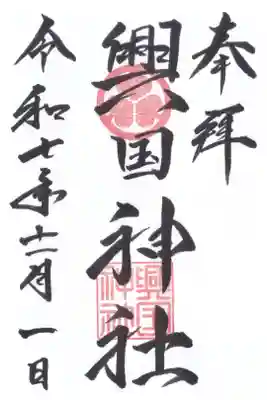 奉拝
興国神社
興国神社
令和七年十二月一日